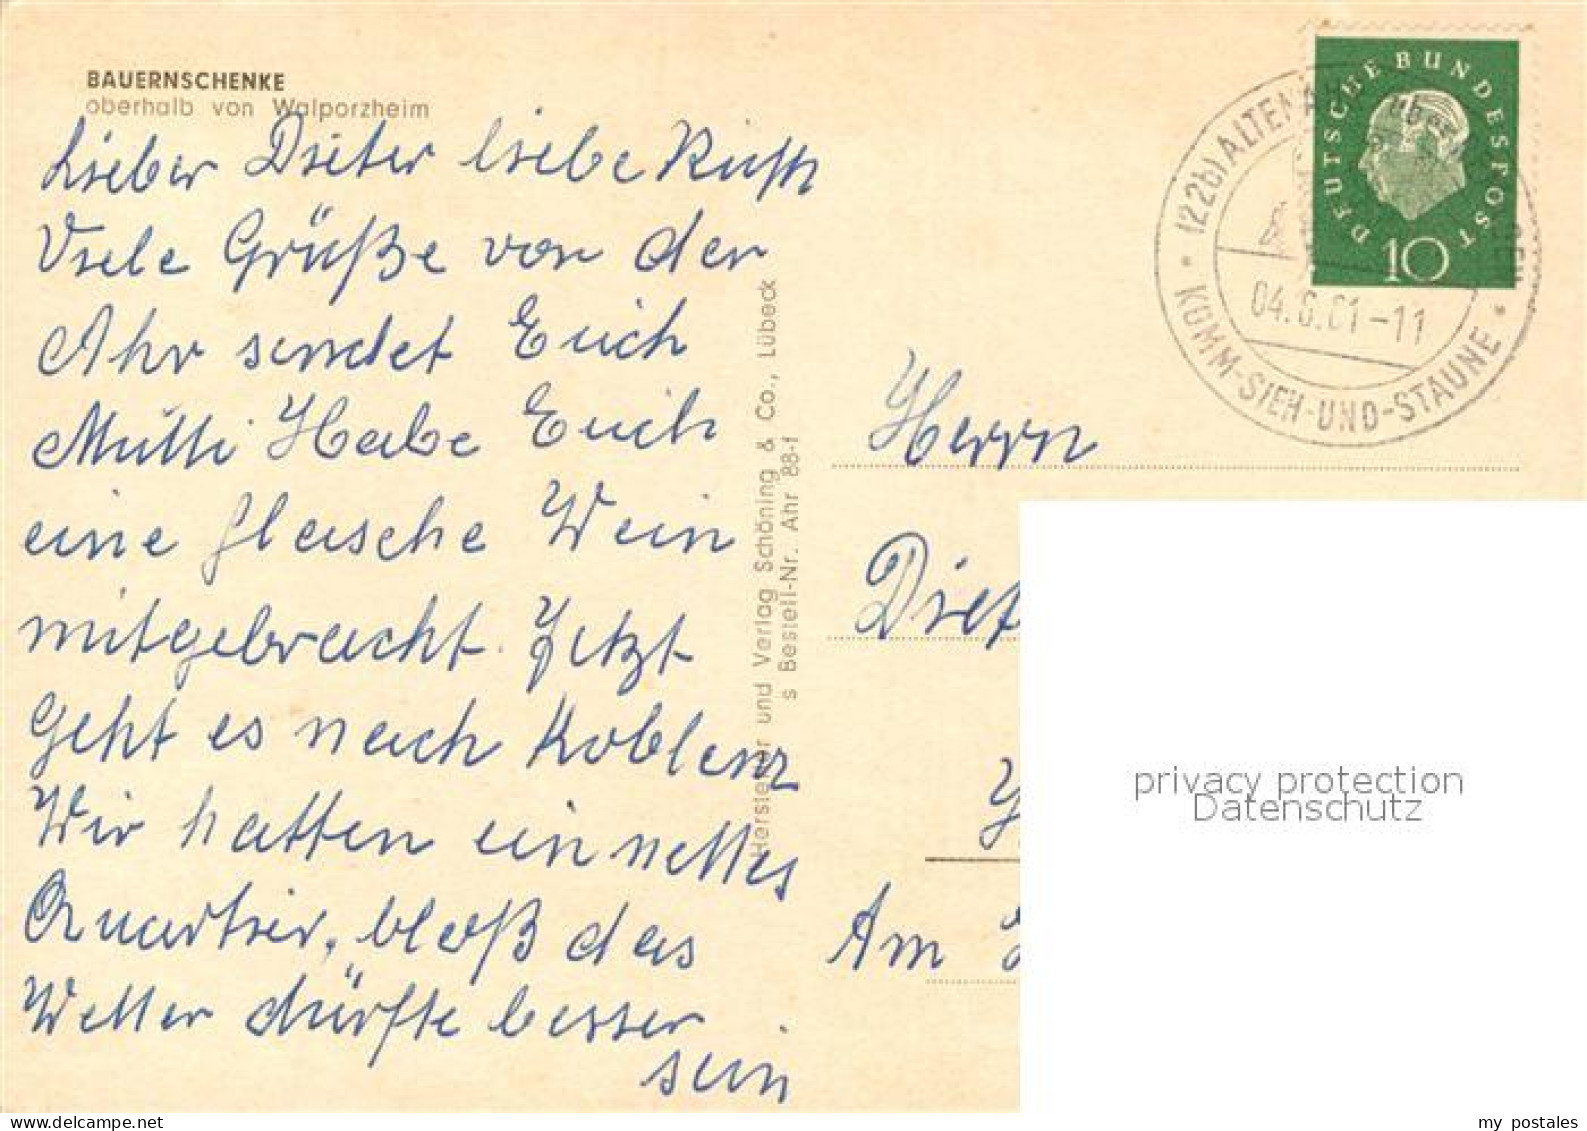 BAUERNSCHENKE
oberhalb von Walporzheim
Lieber Dieter liebe Ruth
Viele Grüße von der
Ahr sendet Euch
Mutti Habe Euch
eine Flasche Wein
mitgebracht. Jetzt
geht es nach Koblenz
Wir hatten ein nettes
Quartier, bloß das
Wetter dürfte besser
sein
Hersteller und Verlag Schöning & Co., Lübeck
s Bestell-Nr. Ahr 88-f
DEUTSCHE BUNDESPOST
10
(22b) ALTENA über
04.6.61-11
KOMM-SIEH-UND-STAUNE
Herrn
Diet
Am
privacy protection
Datenschutz
my postales